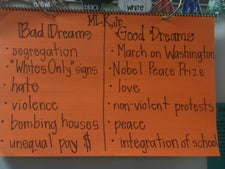 black
white
MLK, Jr.
Bad Dreams
Good Dreams
• segregation
• March on Washington
• "Whites Only" signs
• Nobel Peace Prize
• hate
• love
• violence
• non-violent protests
• bombing houses
• peace
• unequal pay $
• integration of school